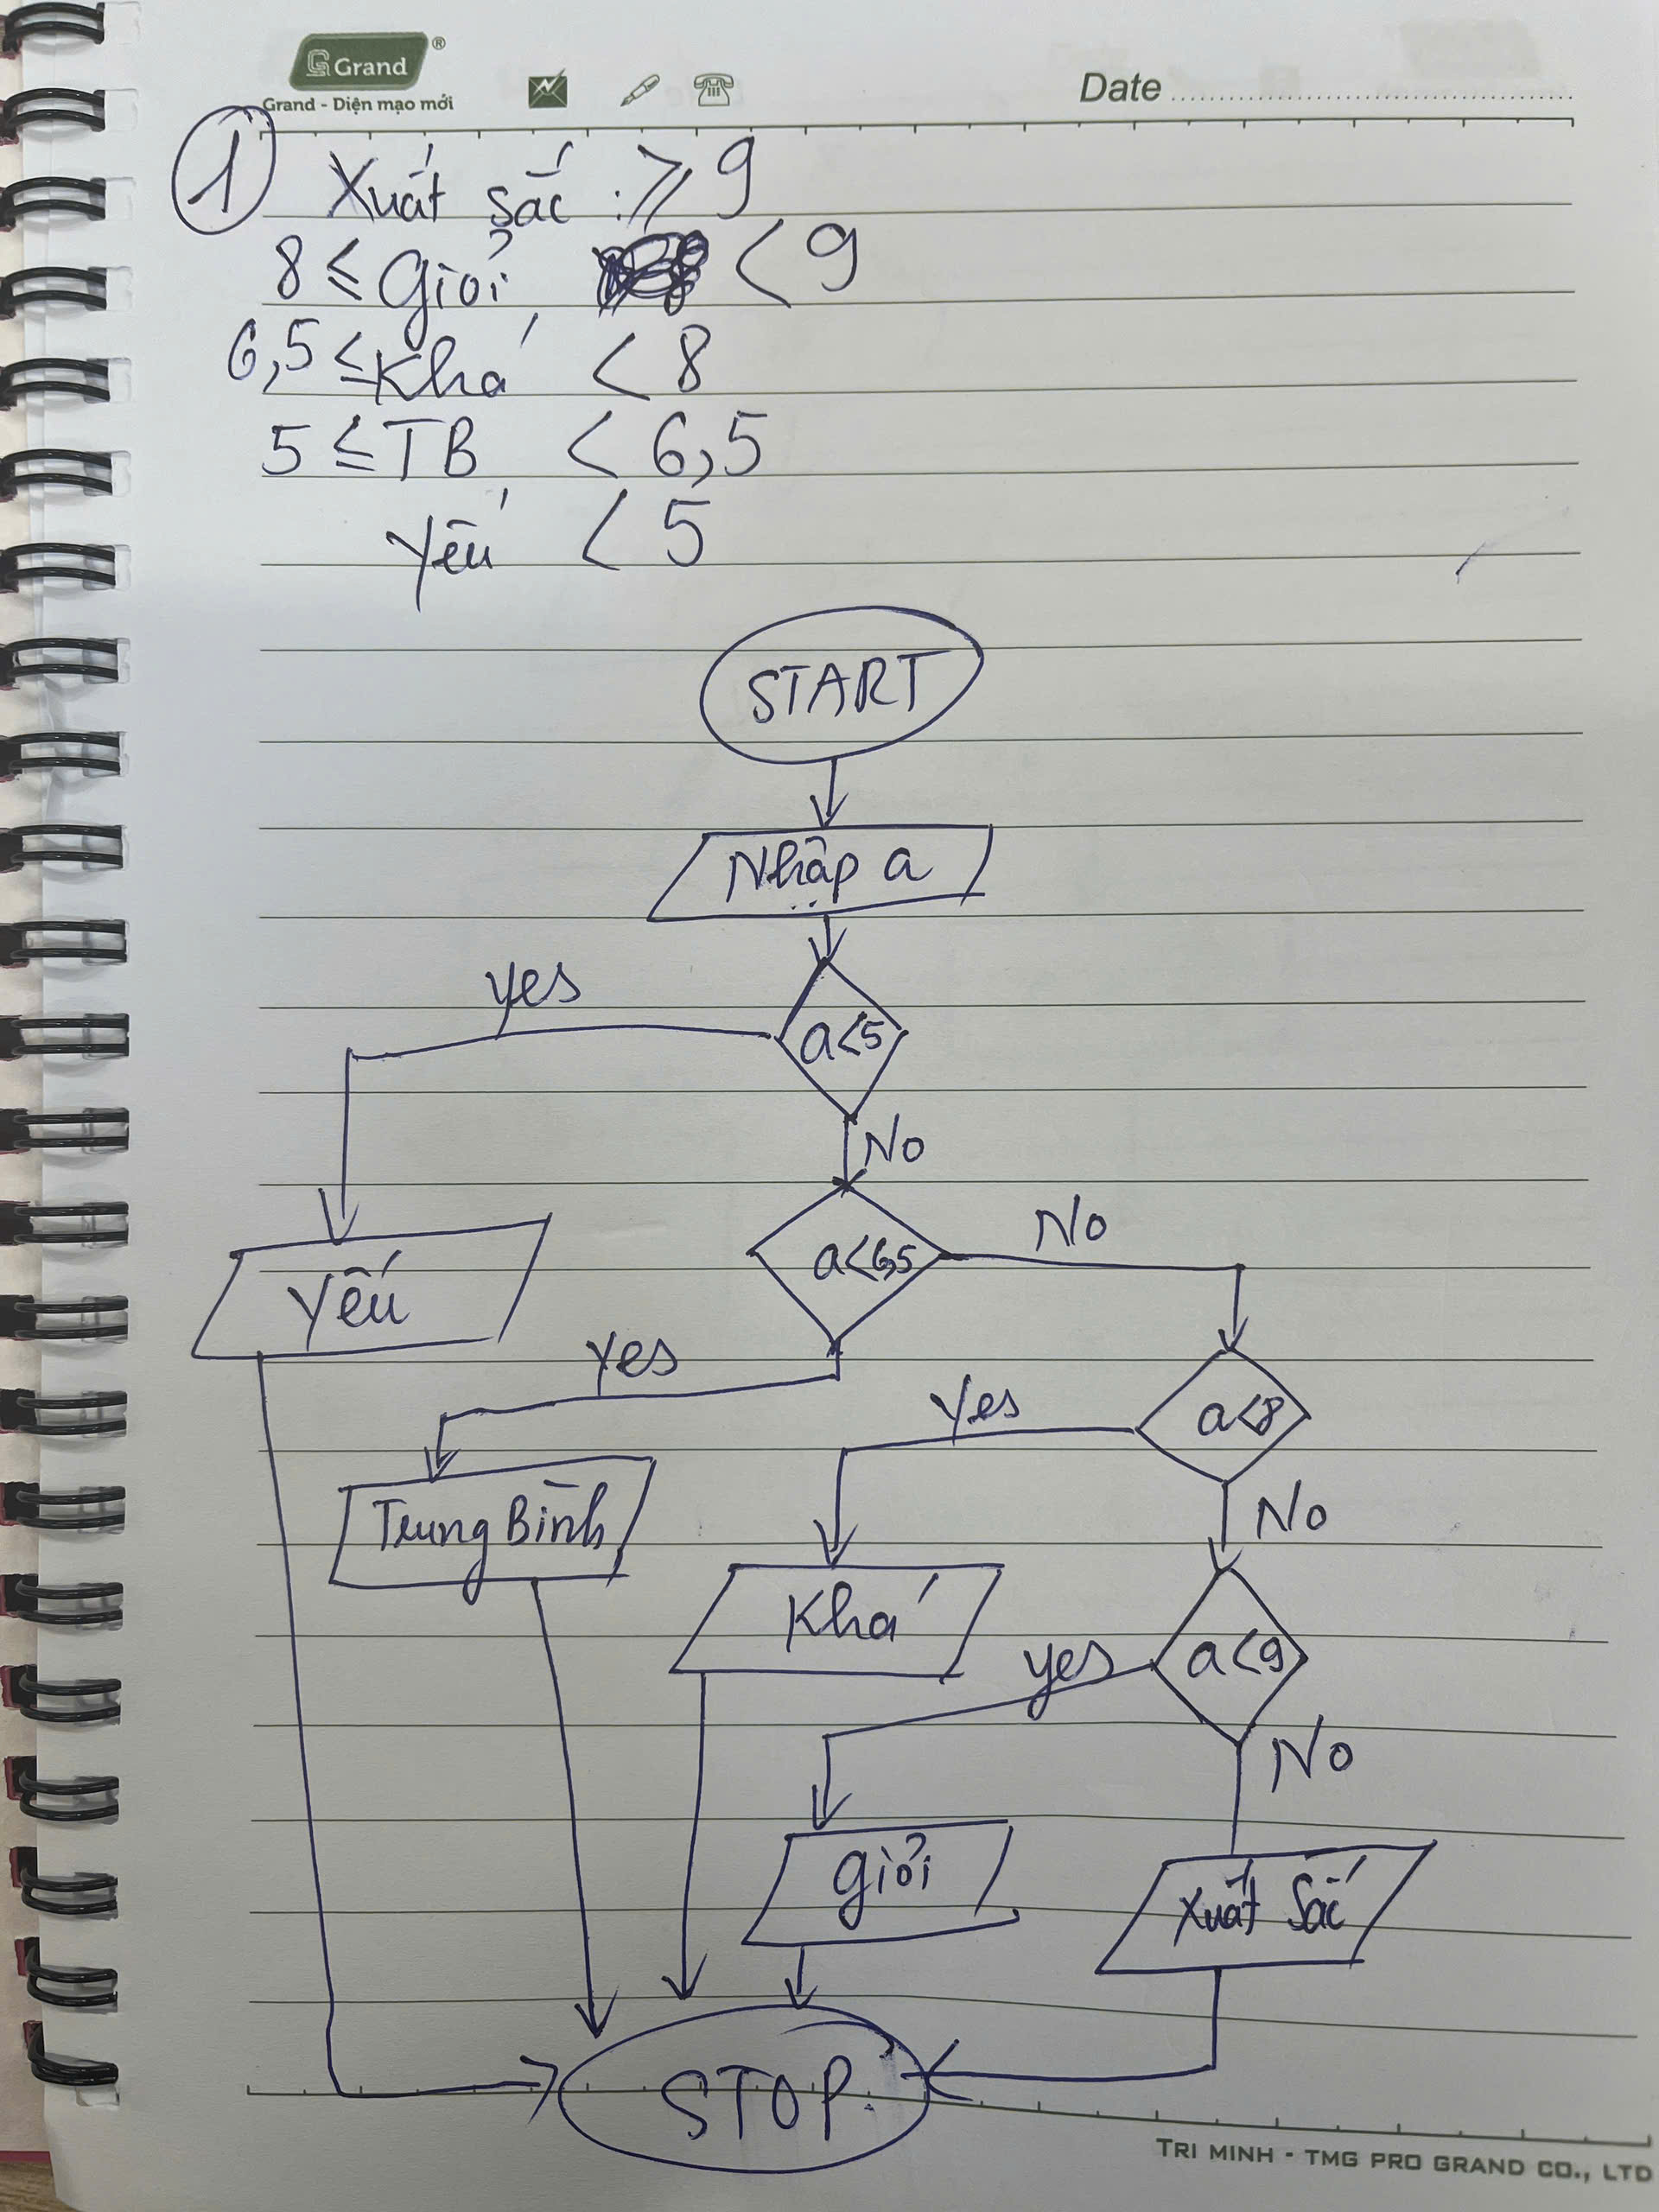 Grand ®
Grand - Diện mạo mới
Date
1 Xuất sắc : ≥ 9
8 ≤ giỏi < 9
6,5 ≤ Khá < 8
5 ≤ TB < 6,5
Yếu < 5
START
Nhập a
yes
a<5
No
a<6,5
No
Yếu
yes
Yes
a<8
Trung Bình
No
Khá
yes
a<9
No
giỏi
Xuất Sắc
STOP
TRI MINH - TMG PRO GRAND CO., LTD